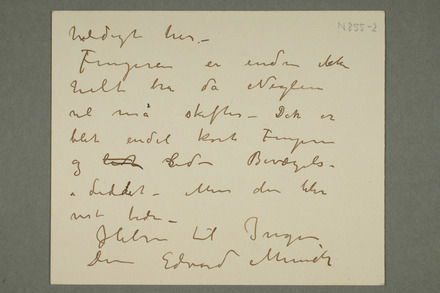 N 855-2
heldigt her. –
Fingeren er endnu ikke
helt bra da Neglen
vel må skiftes – Det er
blet endel kort Finger
og i Bevægels-
Men den blir
vist bedre –
Hilsen til Inger
Din Edvard Munch